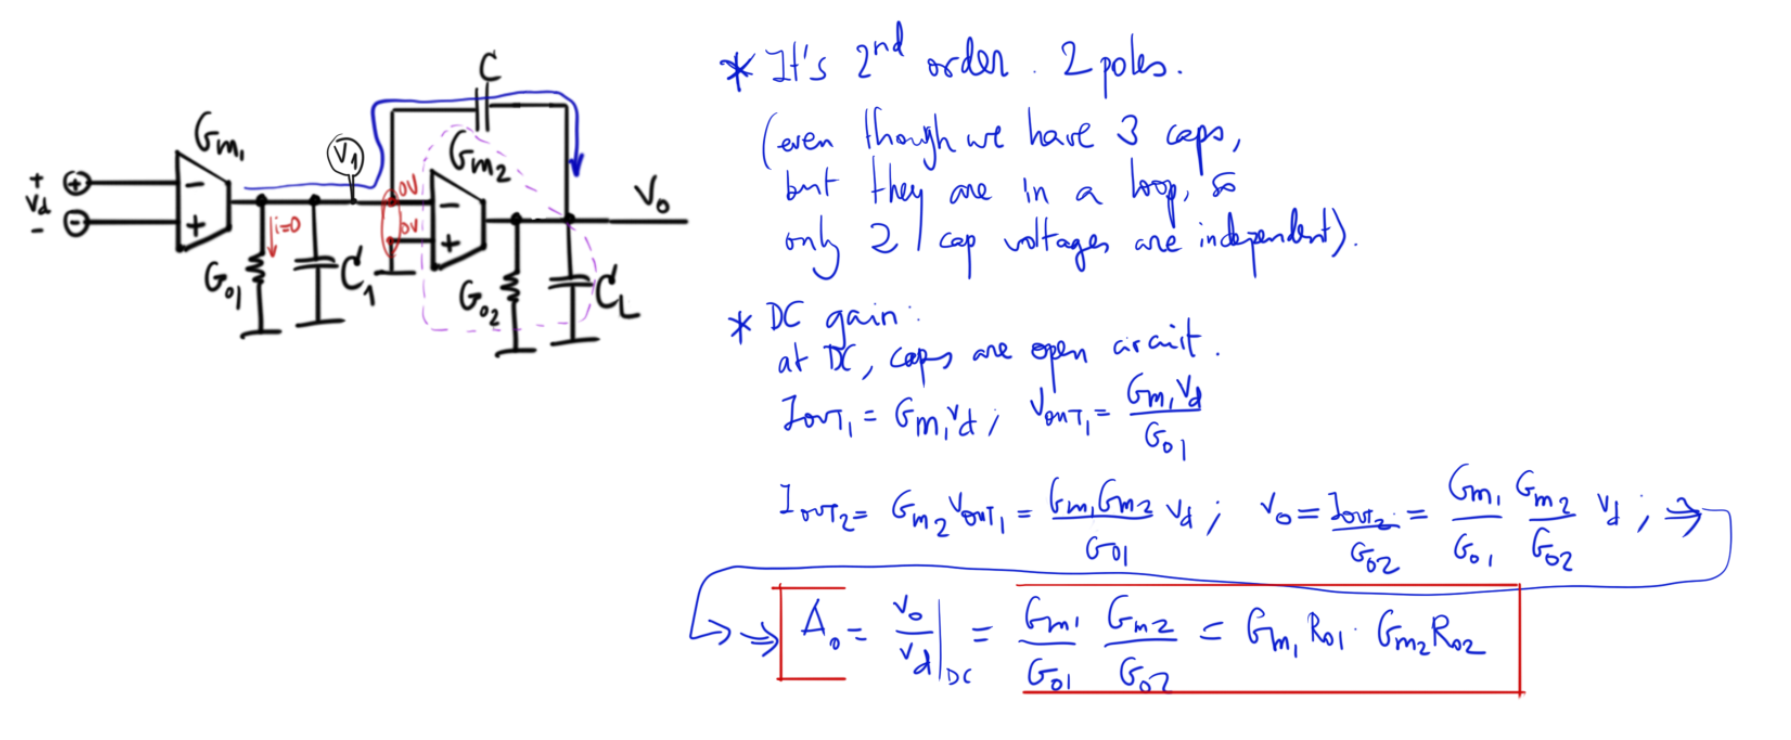 C
Gm1
V1
Gm2
+
Vd
-
+
-
-
+
0V
0V
-
+
Vo
i=0
Go1
C1
Go2
CL
* It's 2nd order. 2 poles.
(even though we have 3 caps,
but they are in a loop, so
only 2 cap voltages are independent).
* DC gain:
at DC, caps are open circuit.
IOUT1 = Gm1 Vd ; VOUT1 = Gm1 Vd / Go1
IOUT2 = Gm2 VOUT1 = Gm1 Gm2 / Go1 Vd ; Vo = IOUT2 / Go2 = Gm1 / Go1 Gm2 / Go2 Vd ; ⇒
⇒ Ao = Vo / Vd |DC = Gm1 / Go1 Gm2 / Go2 = Gm1 Ro1 · Gm2 Ro2